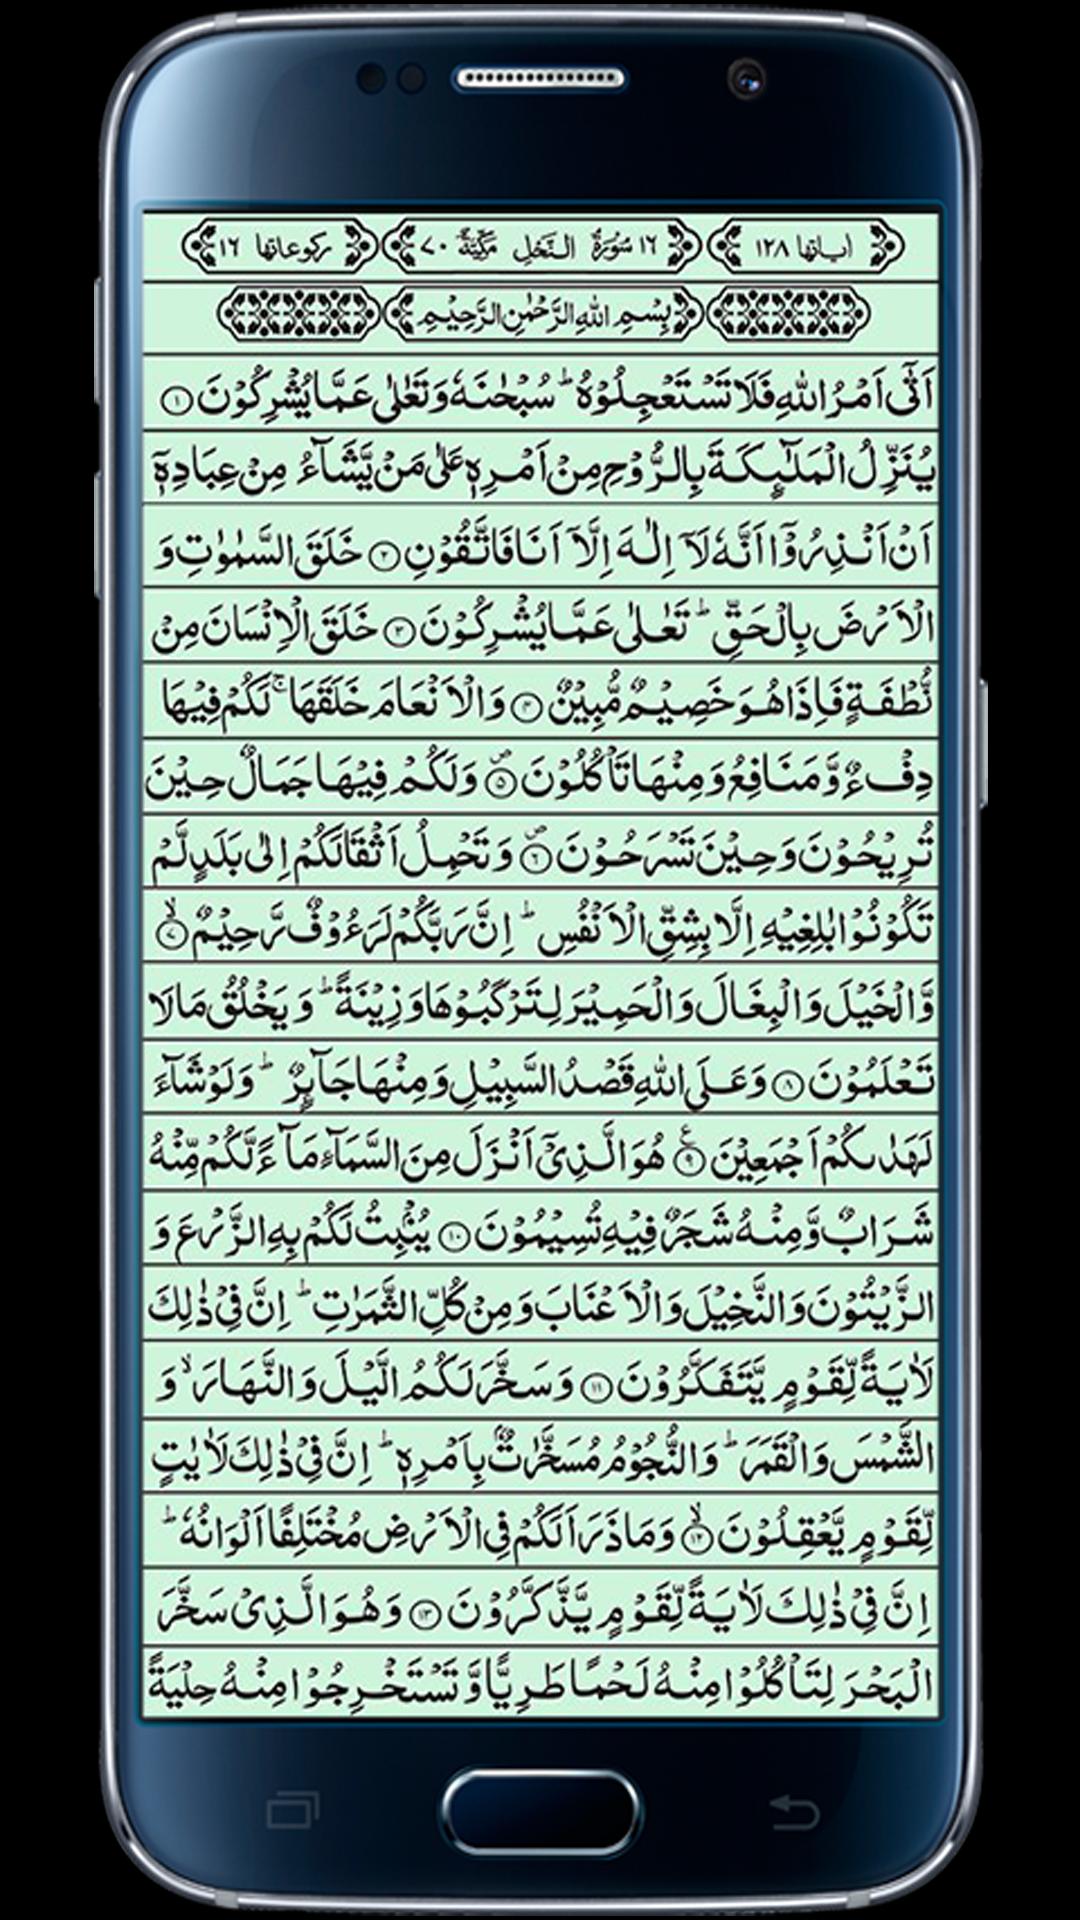 اٰیاتها ١٢٨
١٦ سُوْرَةُ النَّحْلِ مَكِّيَّةٌ ٧٠
ركوعاتها ١٦
بِسْمِ اللهِ الرَّحْمٰنِ الرَّحِيْمِ
اَتٰۤى اَمْرُ اللهِ فَلَا تَسْتَعْجِلُوْهُ ؕ سُبْحٰنَهٗ وَتَعٰلٰى عَمَّا يُشْرِكُوْنَ ①
يُنَزِّلُ الْمَلٰٓئِكَةَ بِالرُّوْحِ مِنْ اَمْرِهٖ عَلٰى مَنْ يَّشَآءُ مِنْ عِبَادِهٖۤ
اَنْ اَنْذِرُوْۤا اَنَّهٗ لَاۤ اِلٰهَ اِلَّاۤ اَنَا فَاتَّقُوْنِ ② خَلَقَ السَّمٰوٰتِ وَ
الْاَرْضَ بِالْحَقِّ ؕ تَعٰلٰى عَمَّا يُشْرِكُوْنَ ③ خَلَقَ الْاِنْسَانَ مِنْ
نُّطْفَةٍ فَاِذَا هُوَ خَصِيْمٌ مُّبِيْنٌ ④ وَالْاَنْعَامَ خَلَقَهَا ۚ لَكُمْ فِيْهَا
دِفْءٌ وَّمَنَافِعُ وَمِنْهَا تَاْكُلُوْنَ ⑤ۖ وَلَكُمْ فِيْهَا جَمَالٌ حِيْنَ
تُرِيْحُوْنَ وَحِيْنَ تَسْرَحُوْنَ ⑥ۖ وَتَحْمِلُ اَثْقَالَكُمْ اِلٰى بَلَدٍ لَّمْ
تَكُوْنُوْا بٰلِغِيْهِ اِلَّا بِشِقِّ الْاَنْفُسِ ؕ اِنَّ رَبَّكُمْ لَرَءُوْفٌ رَّحِيْمٌ ⑦ۙ
وَّالْخَيْلَ وَالْبِغَالَ وَالْحَمِيْرَ لِتَرْكَبُوْهَا وَزِيْنَةً ؕ وَيَخْلُقُ مَا لَا
تَعْلَمُوْنَ ⑧ وَعَلَى اللهِ قَصْدُ السَّبِيْلِ وَمِنْهَا جَآئِرٌ ؕ وَلَوْ شَآءَ
لَهَدٰىكُمْ اَجْمَعِيْنَ ⑨ع هُوَ الَّذِيْۤ اَنْزَلَ مِنَ السَّمَآءِ مَآءً لَّكُمْ مِّنْهُ
شَرَابٌ وَّمِنْهُ شَجَرٌ فِيْهِ تُسِيْمُوْنَ ⑩ يُنْۢبِتُ لَكُمْ بِهِ الزَّرْعَ وَ
الزَّيْتُوْنَ وَالنَّخِيْلَ وَالْاَعْنَابَ وَمِنْ كُلِّ الثَّمَرٰتِ ؕ اِنَّ فِيْ ذٰلِكَ
لَاٰيَةً لِّقَوْمٍ يَّتَفَكَّرُوْنَ ⑪ وَسَخَّرَ لَكُمُ الَّيْلَ وَالنَّهَارَ ۙ وَ
الشَّمْسَ وَالْقَمَرَ ؕ وَالنُّجُوْمُ مُسَخَّرٰتٌۢ بِاَمْرِهٖ ؕ اِنَّ فِيْ ذٰلِكَ لَاٰيٰتٍ
لِّقَوْمٍ يَّعْقِلُوْنَ ⑫ۙ وَمَا ذَرَاَ لَكُمْ فِي الْاَرْضِ مُخْتَلِفًا اَلْوَانُهٗ ؕ
اِنَّ فِيْ ذٰلِكَ لَاٰيَةً لِّقَوْمٍ يَّذَّكَّرُوْنَ ⑬ وَهُوَ الَّذِيْ سَخَّرَ
الْبَحْرَ لِتَاْكُلُوْا مِنْهُ لَحْمًا طَرِيًّا وَّتَسْتَخْرِجُوْا مِنْهُ حِلْيَةً